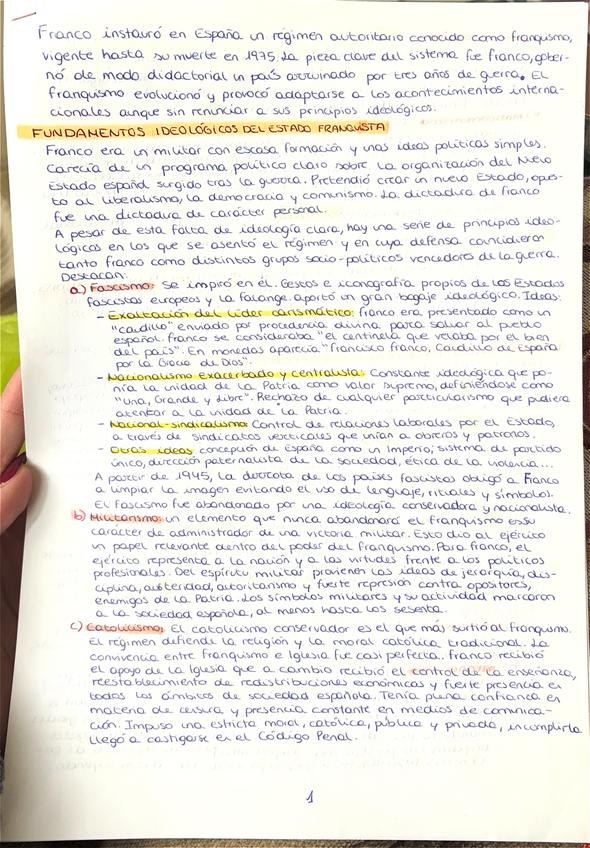 Franco instauró en España un régimen autoritario conocido como franquismo,
vigente hasta su muerte en 1975. La pieza clave del sistema fue franco, gober-
nó de modo didactorial un país arruinado por tres años de guerra. El
franquismo evolucionó y provocó adaptarse a los acontecimientos interna-
cionales aunque sin renunciar a sus principios ideológicos.
FUNDAMENTOS IDEOLÓGICOS DEL ESTADO FRANQUISTA
Franco era un militar con escasa formación y unas ideas políticas simples.
Carecía de un programa político claro sobre la organización del Nuevo
Estado español surgido tras la guerra. Pretendió crear un nuevo Estado, opues-
to al liberalismo, la democracia y comunismo. La dictadura de franco
fue una dictadura de carácter personal.
A pesar de esta falta de ideología clara, hay una serie de principios ideo-
lógicos en los que se asentó el régimen y en cuya defensa coincidieron
tanto franco como distintos grupos socio-políticos vencedores de la guerra.
Destacan:
a) Fascismo: Se inspiró en él. Gestos e iconografía propios de los Estados
fascistas europeos y la Falange. aportó un gran bagaje ideológico. Ideas:
- Exaltación del líder carismático: franco era presentado como un
"caudillo" enviado por procedencia divina para salvar al pueblo
español. Franco se consideraba "el centinela que velaba por el bien
del país". En monedas aparecía "Francisco franco, Caudillo de España
por la Gracia de Dios".
- Nacionalismo exacerbado y centralista: Constante ideológica que po-
nía la unidad de la Patria como valor supremo, definiéndose como
"Una, Grande y Libre". Rechazo de cualquier particularismo que pudiera
atentar a la unidad de la Patria.
- Nacional-sindicalismo: Control de relaciones laborales por el Estado,
a través de sindicatos verticales que unían a obreros y patronos.
- Otras ideas: concepción de España como un Imperio; sistema de partido
único, dirección paternalista de la sociedad, ética de la violencia...
A partir de 1945, la derrota de los países fascistas obligó a Franco
a limpiar la imagen evitando el uso de lenguaje, rituales y símbolos.
El fascismo fue abandonado por una ideología conservadora y nacionalista.
b) Militarismo: un elemento que nunca abandonará el franquismo es su
carácter de administrador de una victoria militar. Esto dio al ejército
un papel relevante dentro del poder del franquismo. Para franco, el
ejército representa a la nación y a las virtudes frente a los políticos
profesionales. Del espíritu militar provienen las ideas de jerarquía, dis-
ciplina, austeridad, autoritarismo y fuerte represión contra opositores,
enemigos de la Patria. Los símbolos militares y su actividad marcaron
a la sociedad española, al menos hasta los sesenta.
c) Catolicismo: El catolicismo conservador es el que más surtió al franquismo.
El régimen defiende la religión y la moral católica tradicional. La
convivencia entre franquismo e Iglesia fue casi perfecta. franco recibió
el apoyo de la Iglesia que a cambio recibió el control de la enseñanza,
reestablecimiento de redistribuciones económicas y fuerte presencia en
todos los ámbitos de sociedad española. Tenía plena confianza en
materia de censura y presencia constante en medios de comunica-
ción. Impuso una estricta moral, católica, pública y privada, incumplirla
llegó a castigarse en el Código Penal.
1